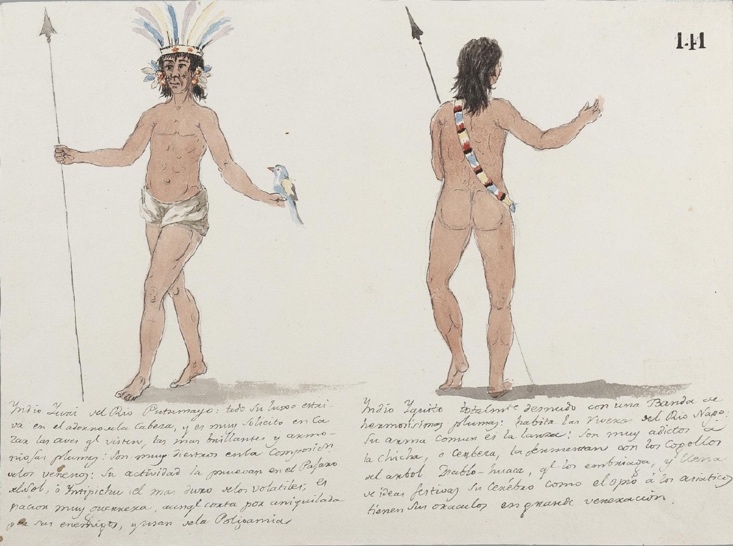 141
Yndio Yuri del Rio Putumayo: todo su luxo estri-
va en el adorno de la Cabeza, y es muy solicito en Ca-
zar las aves qe visten, las mas brillantes y armo-
niosas plumas: son muy diestros en la Composicion
de los venenos: su actividad la prueban en el Paxaro
del Sol, ó Yntipichu el mas duro de los volatiles; es
nacion muy guerrera, aunqe corta por aniquilada
por sus enemigos, y usan de la Poligamia
Yndio Yquito totalmte desnudo con una Banda de
hermosisimas plumas: habita las riveras del Rio Napo,
su arma comun es la lanza: son muy adictos á
la Chicha, o Cerbeza, la fermentan con los Cogollos
del arbol Diablo-huasca, qe los embriaga, y llena
de ideas festivas su Cerebro como el opio á los asiaticos
tienen sus oraculos en grande veneracion